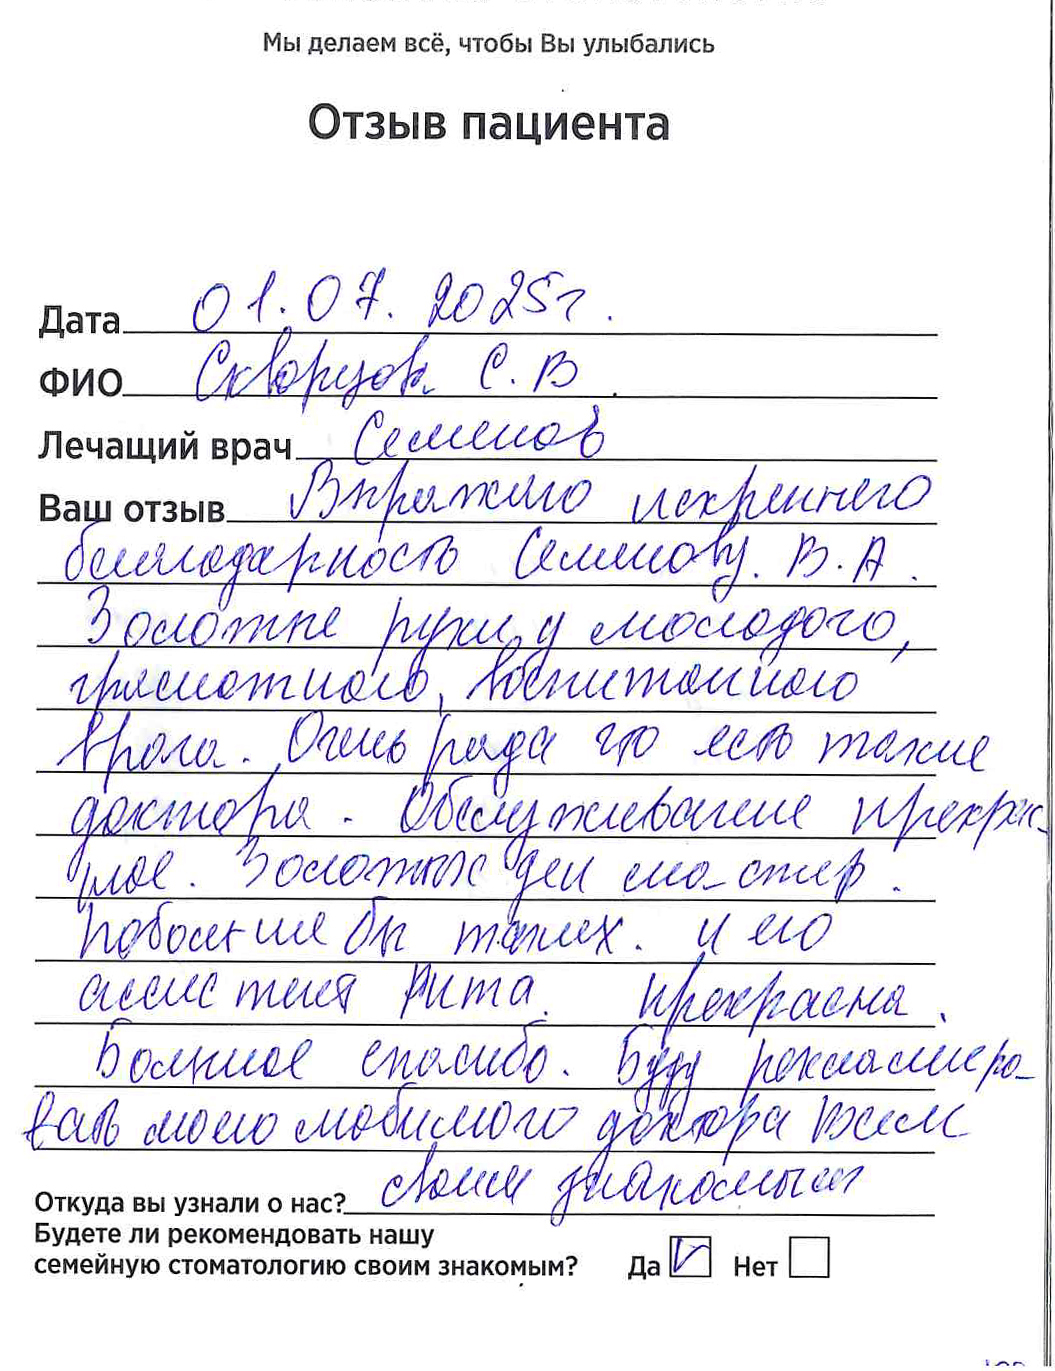 Мы делаем всё, чтобы Вы улыбались
Отзыв пациента
Дата 01.07.2025г.
ФИО Скворцова С.В.
Лечащий врач Семенов
Ваш отзыв Выражаю искреннего
благодарность Семенову. В.А.
Золотые руки у молодого,
грамотного, воспитанного
врача. Очень рада что есть такие
доктора. Обслуживание прекрас-
ное. Золотых дел ма-стер.
Побольше бы таких. И его
ассистент Рита. Прекрасна.
Большое спасибо. Буду рекламиро-
вать моего любимого доктора всем
Откуда вы узнали о нас? своим знакомым
Будете ли рекомендовать нашу
семейную стоматологию своим знакомым? Да Нет